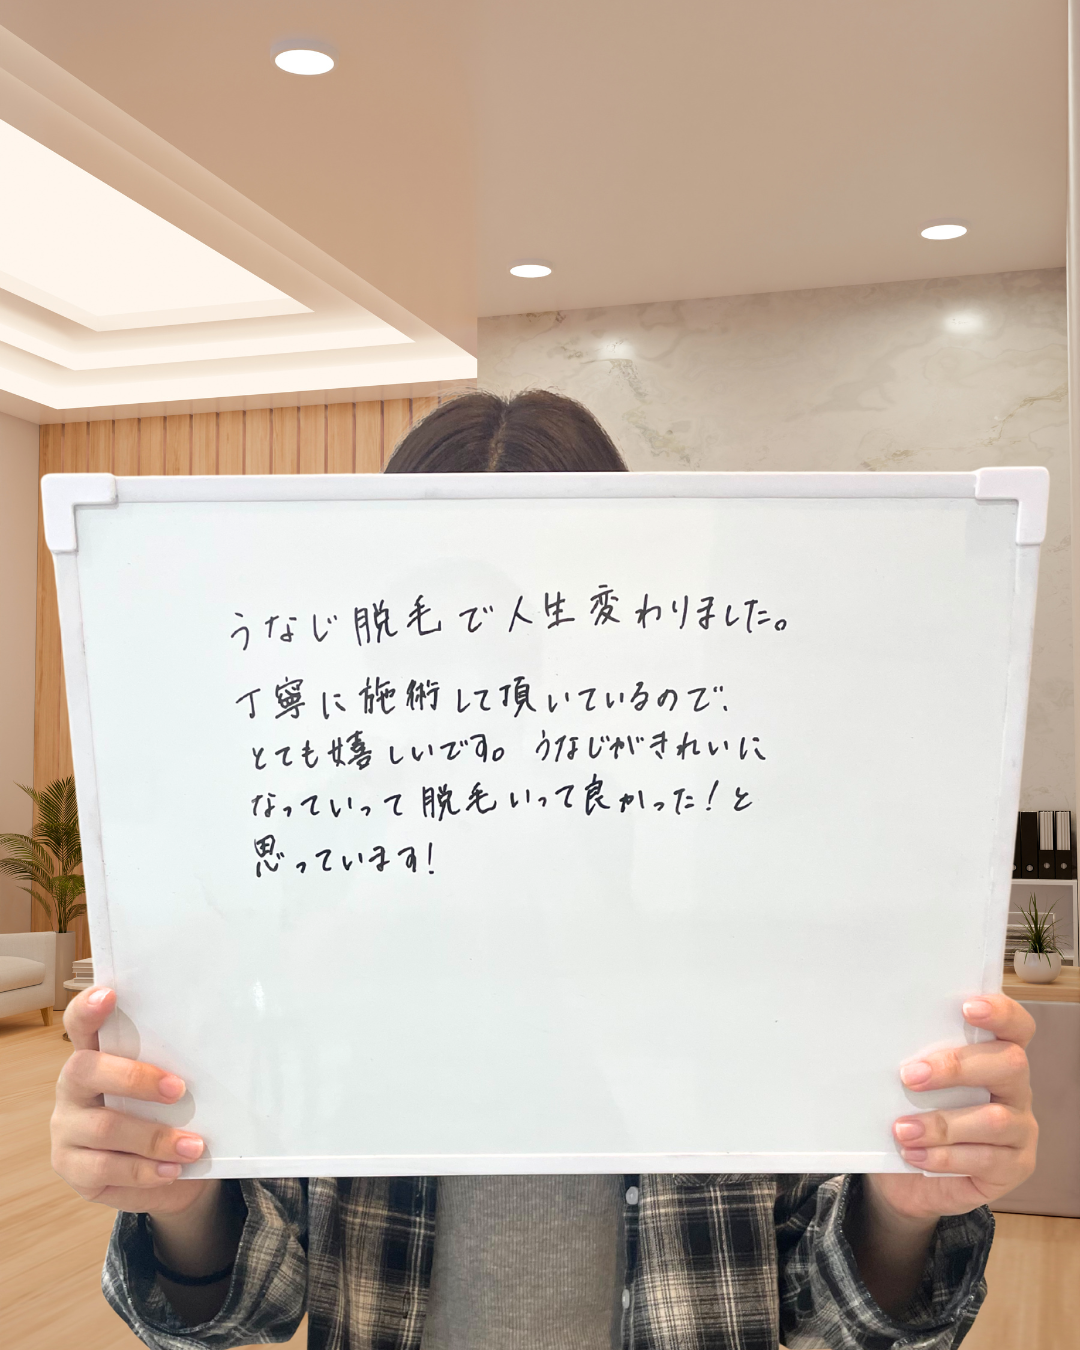 うなじ脱毛で人生変わりました。
丁寧に施術して頂いているので、
とても嬉しいです。うなじがきれいに
なっていって脱毛いって良かった!と
思っています!